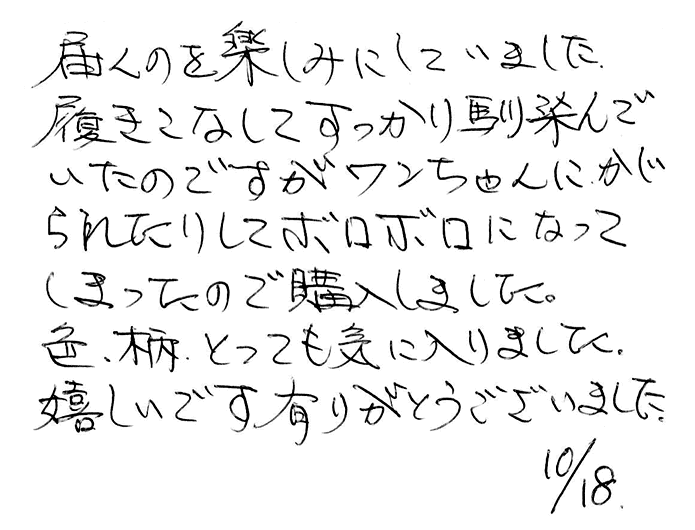 届くのを楽しみにしていました.
履きこなしてすっかり馴染んで
いたのですがワンちゃんにかじ
られたりしてボロボロになって
しまったので購入しました。
色、柄、とっても気に入りました.
嬉しいです有りがとうございました.
10/18.